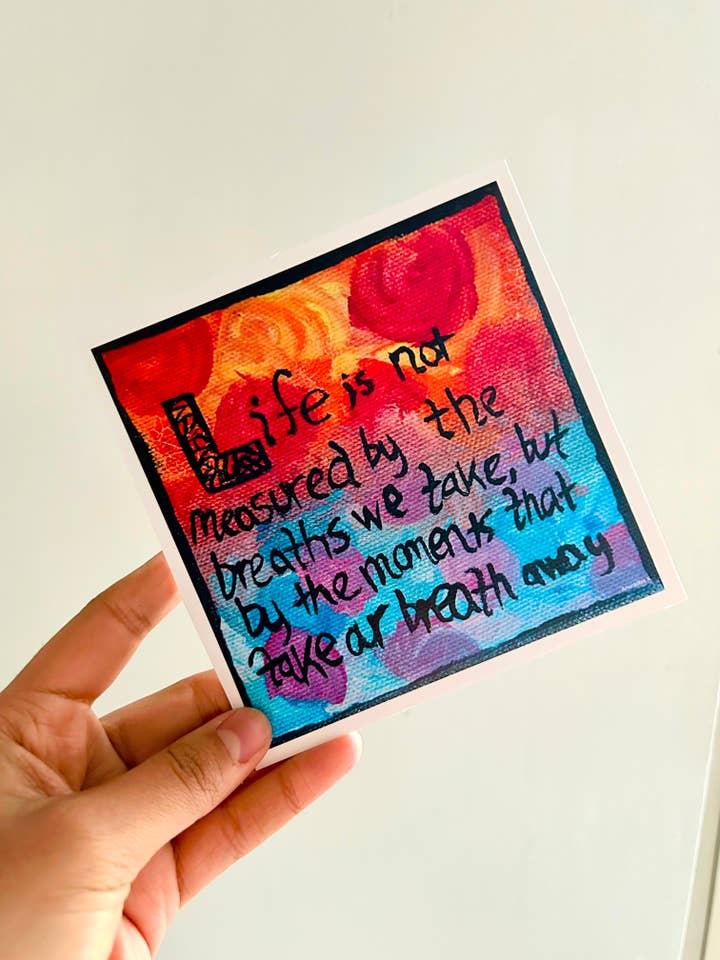 Life is not
measured by the
breaths we take, but
by the moments that
take our breath away